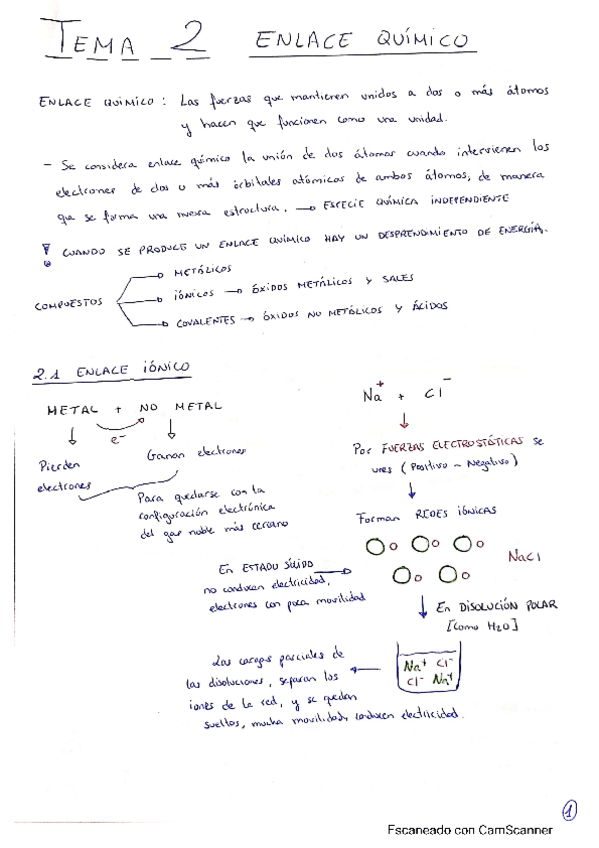 TEMA 2 ENLACE QUÍMICO
ENLACE QUÍMICO : Las fuerzas que mantienen unidos a dos o más átomos
y hacen que funcionen como una unidad.
- Se considera enlace químico la unión de dos átomos cuando intervienen los
electrones de dos u más órbitales atómicos de ambos átomos, de manera
que se forma una nueva estructura. → ESPECIE QUÍMICA INDEPENDIENTE
! CUANDO SE PRODUCE UN ENLACE QUÍMICO HAY UN DESPRENDIMIENTO DE ENERGÍA.
COMPUESTOS
→ METÁLICOS
→ IÓNICOS → ÓXIDOS METÁLICOS Y SALES
→ COVALENTES → ÓXIDOS NO METÁLICOS Y ÁCIDOS
2.1 ENLACE IÓNICO
METAL + NO METAL
e⁻
Pierden
electrones
Ganan electrones
Para quedarse con la
configuración electrónica
del gas noble más cercano
Na⁺ + Cl⁻
Por FUERZAS ELECTROSTÁTICAS se
unes (Positivo - Negativo)
Forman REDES IÓNICAS
NaCl
En ESTADO SÓLIDO
no conducen electricidad,
electrones con poca movilidad
En DISOLUCIÓN POLAR
[Como H2O]
Na⁺ Cl⁻
Cl⁻ Na⁺
Las cargas parciales de
las disoluciones, separan los
iones de la red, y se quedan
sueltos, mucha movilidad, conducen electricidad.
1
Escaneado con CamScanner